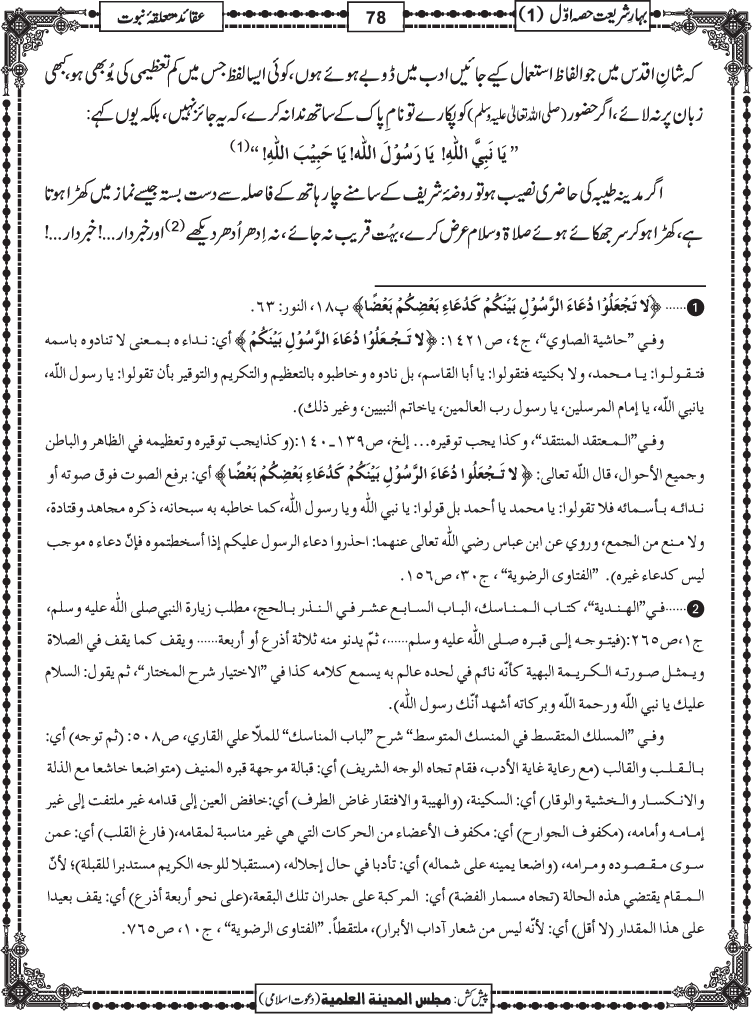 بہارِ شریعت حصہ اوّل (1)
78
عقائد متعلقۂ نبوت
کہ شانِ اقدس میں جو الفاظ استعمال کیے جائیں ادب میں ڈوبے ہوئے ہوں، کوئی ایسا لفظ جس میں کم تعظیمی کی بُو بھی ہو، کبھی
زبان پر نہ لائے، اگر حضور (صلی اللہ تعالیٰ علیہ وسلم) کو پکارے تو نامِ پاک کے ساتھ ندا نہ کرے، کہ یہ جائز نہیں، بلکہ یوں کہے:
”یَا نَبِيَّ اللهِ! یَا رَسُوْلَ الله! یَا حَبِیْبَ اللهِ!“ (1)
اگر مدینہ طیبہ کی حاضری نصیب ہو تو روضۂ شریف کے سامنے چار ہاتھ کے فاصلہ سے دست بستہ جیسے نماز میں کھڑا ہوتا
ہے، کھڑا ہو کر سر جھکائے ہوئے صلاۃ وسلام عرض کرے، بہُت قریب نہ جائے، نہ اِدھر اُدھر دیکھے (2) اور خبردار...! خبردار...!
1 ...... ﴿لَا تَجْعَلُوْا دُعَاءَ الرَّسُوْلِ بَيْنَكُمْ كَدُعَاءِ بَعْضِكُمْ بَعْضًا﴾ پ١٨، النور: ٦٣.
وفي ”حاشية الصاوي“، ج٤، ص١٤٢١: ﴿لَا تَجْعَلُوْا دُعَاءَ الرَّسُوْلِ بَيْنَكُمْ﴾ أي: نداء ه بمعنى لا تنادوه باسمه
فتقولوا: يا محمد، ولا بكنيته فتقولوا: يا أبا القاسم، بل نادوه وخاطبوه بالتعظيم والتكريم والتوقير بأن تقولوا: يا رسول الله،
يانبي الله، يا إمام المرسلين، يا رسول رب العالمين، ياخاتم النبيين، وغير ذلك).
وفي”المعتقد المنتقد“، وكذا يجب توقيره... إلخ، ص١٣٩ـ١٤٠:(وكذايجب توقيره وتعظيمه في الظاهر والباطن
وجميع الأحوال، قال الله تعالى: ﴿لَا تَجْعَلُوا دُعَاءَ الرَّسُوْلِ بَيْنَكُمْ كَدُعَاءِ بَعْضِكُمْ بَعْضًا﴾ أي: برفع الصوت فوق صوته أو
ندائه بأسمائه فلا تقولوا: يا محمد يا أحمد بل قولوا: يا نبي الله ويا رسول الله،كما خاطبه به سبحانه، ذكره مجاهد وقتادة،
ولا منع من الجمع، وروي عن ابن عباس رضي الله تعالى عنهما: احذروا دعاء الرسول عليكم إذا أسخطتموه فإنّ دعاء ه موجب
ليس كدعاء غيره). ”الفتاوى الرضوية“ ، ج٣٠، ص١٥٦.
2 ......في”الهندية“، كتاب المناسك، الباب السابع عشر في النذر بالحج، مطلب زيارة النبي صلى الله عليه وسلم،
ج١،ص٢٦٥:(فيتوجه إلى قبره صلى الله عليه وسلم......، ثمّ يدنو منه ثلاثة أذرع أو أربعة...... ويقف كما يقف في الصلاة
ويمثل صورته الكريمة البهية كأنّه نائم في لحده عالم به يسمع كلامه كذا في ”الاختيار شرح المختار“، ثم يقول: السلام
عليك يا نبي الله ورحمة الله وبركاته أشهد أنّك رسول الله).
وفي ”المسلك المتقسط في المنسك المتوسط“ شرح ”لباب المناسك“ للملاّ علي القاري، ص٥٠٨: (ثم توجه) أي:
بالقلب والقالب (مع رعاية غاية الأدب، فقام تجاه الوجه الشريف) أي: قبالة موجهة قبره المنيف (متواضعا خاشعا مع الذلة
والانكسار والخشية والوقار) أي: السكينة، (والهيبة والافتقار غاض الطرف) أي:خافض العين إلى قدامه غير ملتفت إلى غير
إمامه وأمامه، (مكفوف الجوارح) أي: مكفوف الأعضاء من الحركات التي هي غير مناسبة لمقامه،( فارغ القلب) أي: عمن
سوى مقصوده ومرامه، (واضعا يمينه على شماله) أي: تأدبا في حال إجلاله، (مستقبلا للوجه الكريم مستدبرا للقبلة)؛ لأنّ
المقام يقتضي هذه الحالة (تجاه مسمار الفضة) أي: المركبة على جدران تلك البقعة،(على نحو أربعة أذرع) أي: يقف بعيدا
على هذا المقدار (لا أقل) أي: لأنّه ليس من شعار آداب الأبرار)، ملتقطاً. ”الفتاوى الرضوية“ ، ج١٠، ص٧٦٥.
پیش کش: مجلس المدینة العلمیة (دعوت اسلامی)